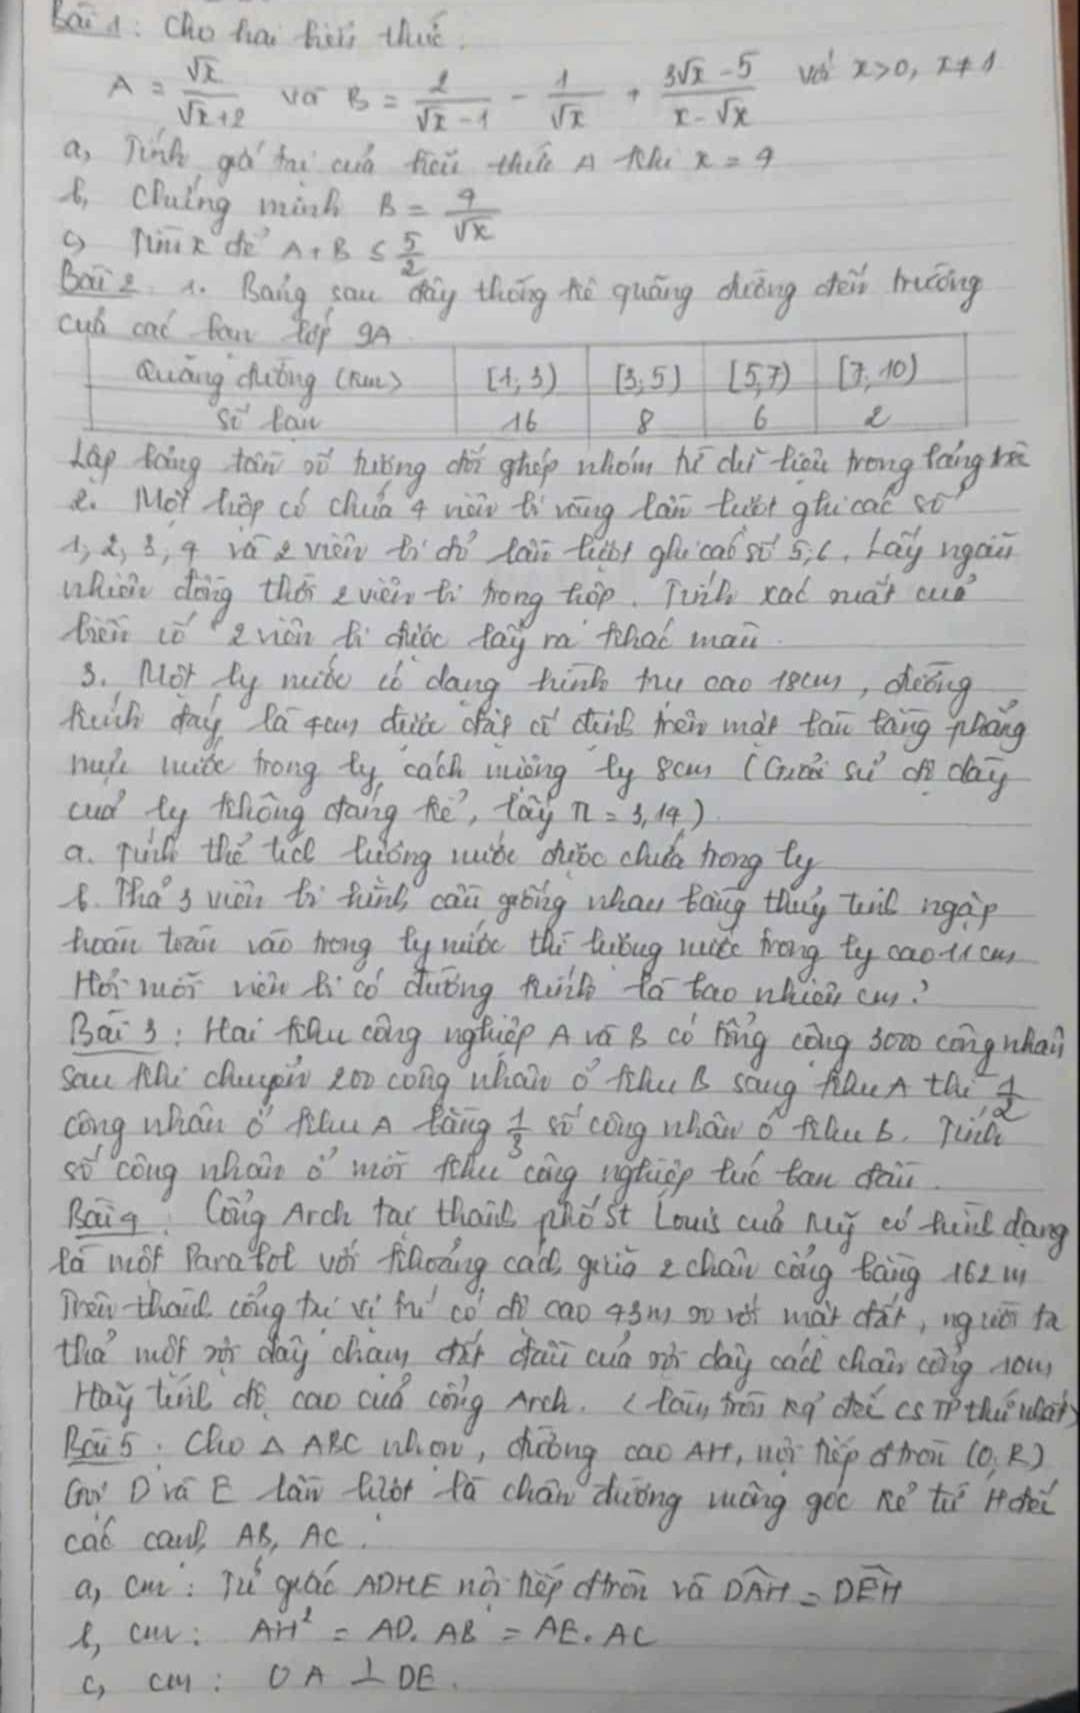 Bài 1: Cho hai biểu thức.
A = √x/(√x+2) và B = 2/(√x-1) - 1/√x + (3√x-5)/(x-√x) với x>0, x≠1
a, Tính giá trị của biểu thức A khi x = 4
b, Chứng minh B = 4/√x
c, Tìm x để A+B ≤ 5/2
Bài 2. 1. Bảng sau đây thống kê quãng đường đến trường
của các bạn lớp 9A
Quãng đường (km) [1; 3) [3; 5) [5; 7) [7; 10)
Số bạn 16 8 6 2
Lập bảng tần số tương đối ghép nhóm từ dữ liệu trong bảng trên
2. Một hộp có chứa 4 viên bi vàng lần lượt ghi các số
1, 2, 3, 4 và 2 viên bi đỏ lần lượt ghi các số 5; 6. Lấy ngẫu
nhiên đồng thời 2 viên bi trong hộp. Tính xác suất của
biến cố "2 viên bi được lấy ra khác màu.
3. Một ly nước có dạng hình trụ cao 18cm, đường
kính đáy là 4cm được đặt cố định trên mặt bàn bằng phẳng
mực nước trong ly cách miệng ly 8cm (Giả sử độ dày
của ly không đáng kể, lấy π = 3,14).
a. Tính thể tích lượng nước được chứa trong ly
b. Thả 3 viên bi hình cầu giống nhau bằng thủy tinh ngập
hoàn toàn vào trong ly nước thì lượng nước trong ly cao 11 cm
Hỏi mỗi viên bi có đường kính là bao nhiêu cm?
Bài 3: Hai khu công nghiệp A và B có tổng cộng 3000 công nhân
sau khi chuyển 200 công nhân ở khu B sang khu A thì 1/2
công nhân ở khu A bằng 1/3 số công nhân ở khu B. Tính
số công nhân ở mỗi khu công nghiệp lúc ban đầu.
Bài 4: Cổng Arch tại thành phố St Louis của Mỹ có hình dạng
là một Parabol với khoảng cách giữa 2 chân cổng bằng 162 m
Trên thành cổng tại vị trí có độ cao 43m so với mặt đất, người ta
thả một sợi dây chạm đất đầu của sợi dây cách chân cổng 10m
Hãy tính độ cao của cổng Arch. (làm tròn kq đến CSTP thứ nhất)
Bài 5: Cho Δ ABC nhọn, đường cao AH, nội tiếp đtròn (O; R)
Gọi D và E lần lượt là chân đường vuông góc kẻ từ H đến
các cạnh AB, AC.
a, cm: Tứ giác ADHE nội tiếp đtròn và D̂AH = D̂EH
b, cm: AH² = AD. AB = AE. AC
c, cm: OA ⊥ DE.